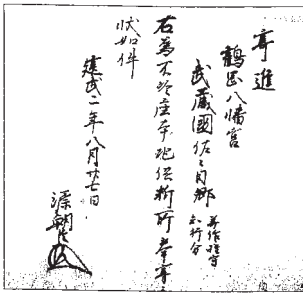 寄進
鶴岡八幡宮
武蔵國佐々目郷 美作権守
知行分
右為不冷座本地供料所奉寄
状如件
建武二年八月廿七日
源朝臣